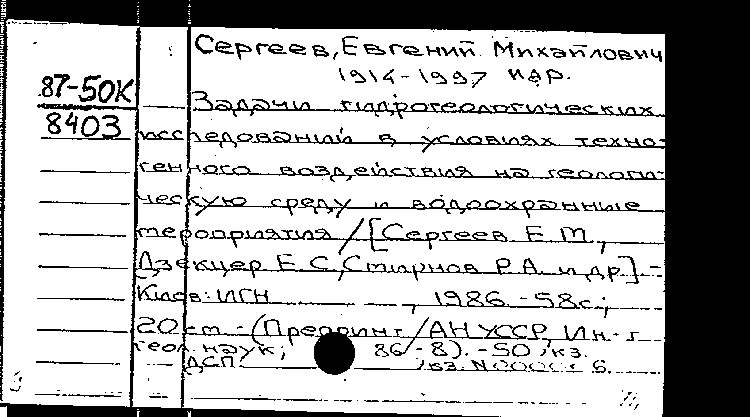 Сергеев, Евгений Михайлович
1914-1997 и др.
87-50К
8403
Задачи гидрогеологических
исследований в условиях техно-
генного воздействия на геологи-
ческую среду и водоохранные
мероприятия / [Сергеев Е. М.,
Дзекцер Е. С., Смирнов Р. А. и др.] -
Киев: ИГН, 1986. - 58с.;
20 см. - (Препринт / АН УССР, Ин-т
геол. наук; 86-8). - 50 экз.
ДСП. экз. N 6.